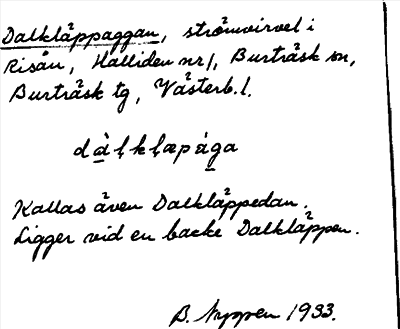 Dalkläppaggan, strömvirvel i
Risån, Halliden nr 1, Burträsk sn,
Burträsk tg, Västerb. l.
dàlklæpága
Kallas även Dalkläppedan.
Ligger vid en backe Dalkläppen.
B. Nyppen 1933.